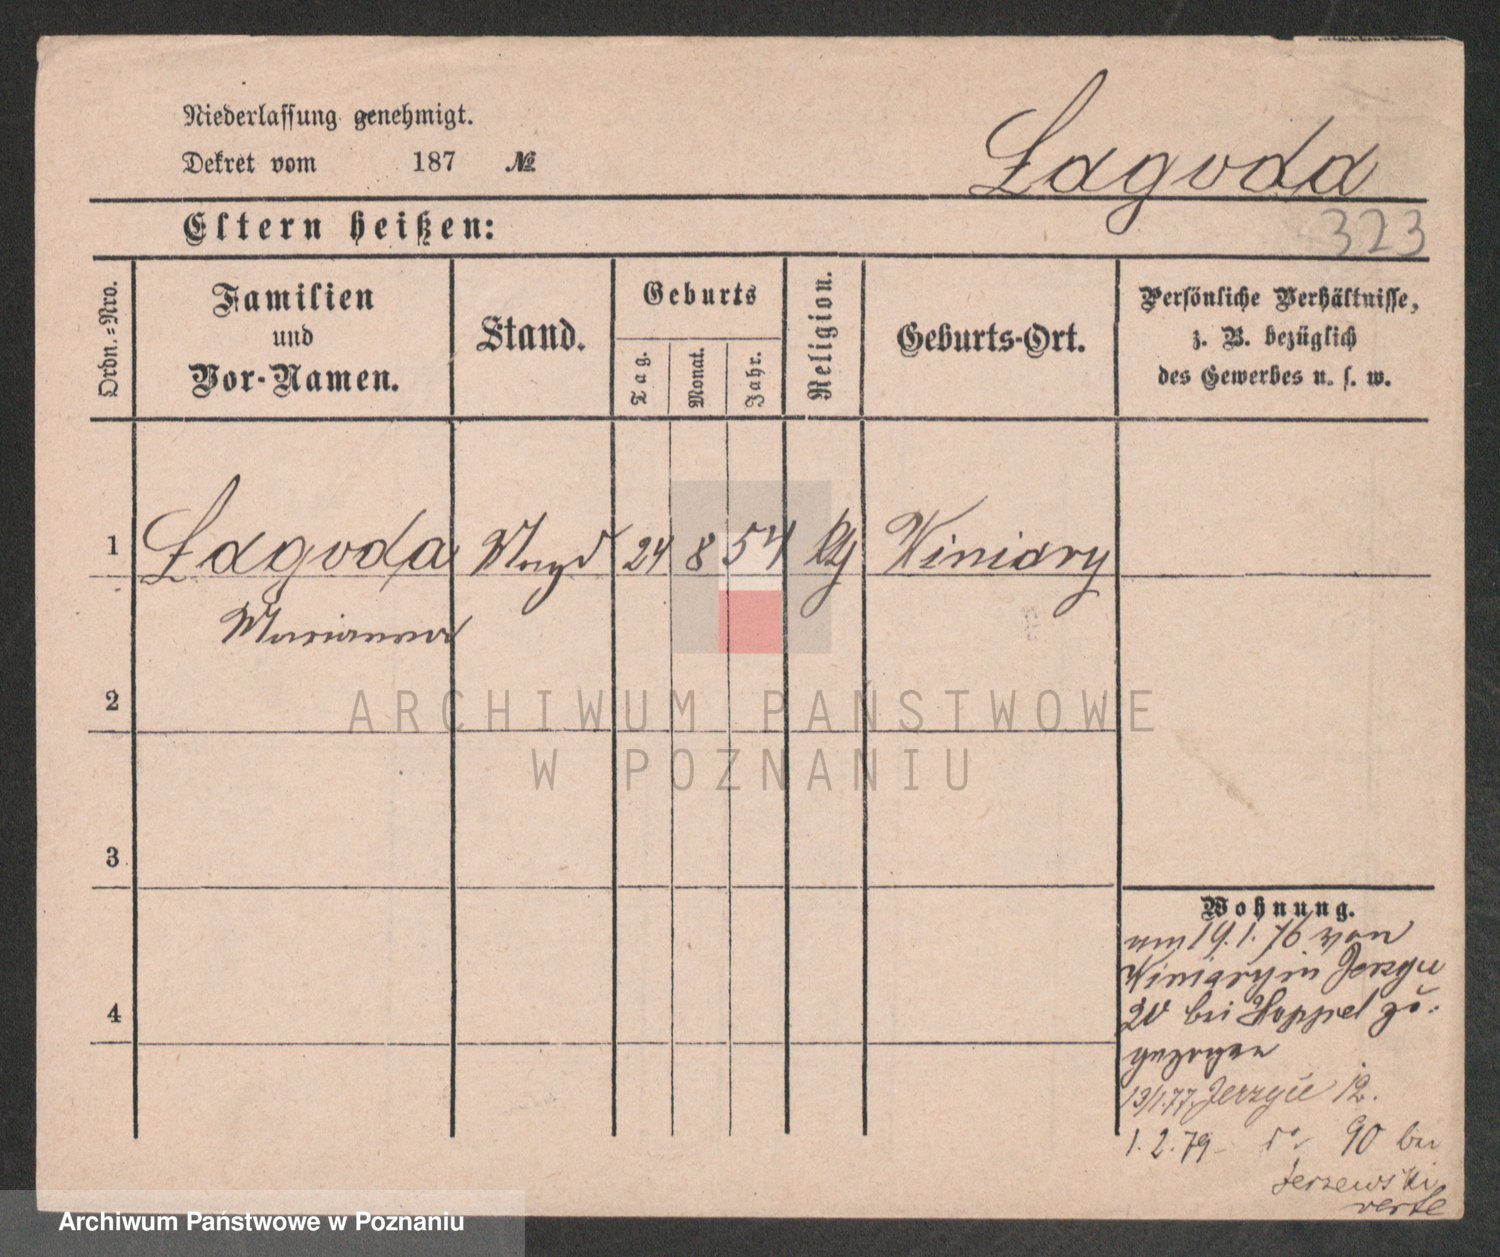 Niederlassung genehmigt.
Dekret vom 187 №
Łagoda
Eltern heißen:
323
Ordn.-Nro.
Familien
und
Vor-Namen.
Stand.
Geburts
Tag.
Monat.
Jahr.
Religion.
Geburts-Ort.
Persönliche Verhältnisse,
z. B. bezüglich
des Gewerbes u. s. w.
1 Łagoda Magd 24 8 54 Winiary
Marianna
2
ARCHIWUM PAŃSTWOWE
W POZNANIU
3
Wohnung.
am 19.1.76 von
Winiary in Jerzyce
20 bei Hoppel zu-
gezogen
13/1.77. Jerzyce 12.
4
1.2.79 do 90 bei
Jerzewski
verte
Archiwum Państwowe w Poznaniu